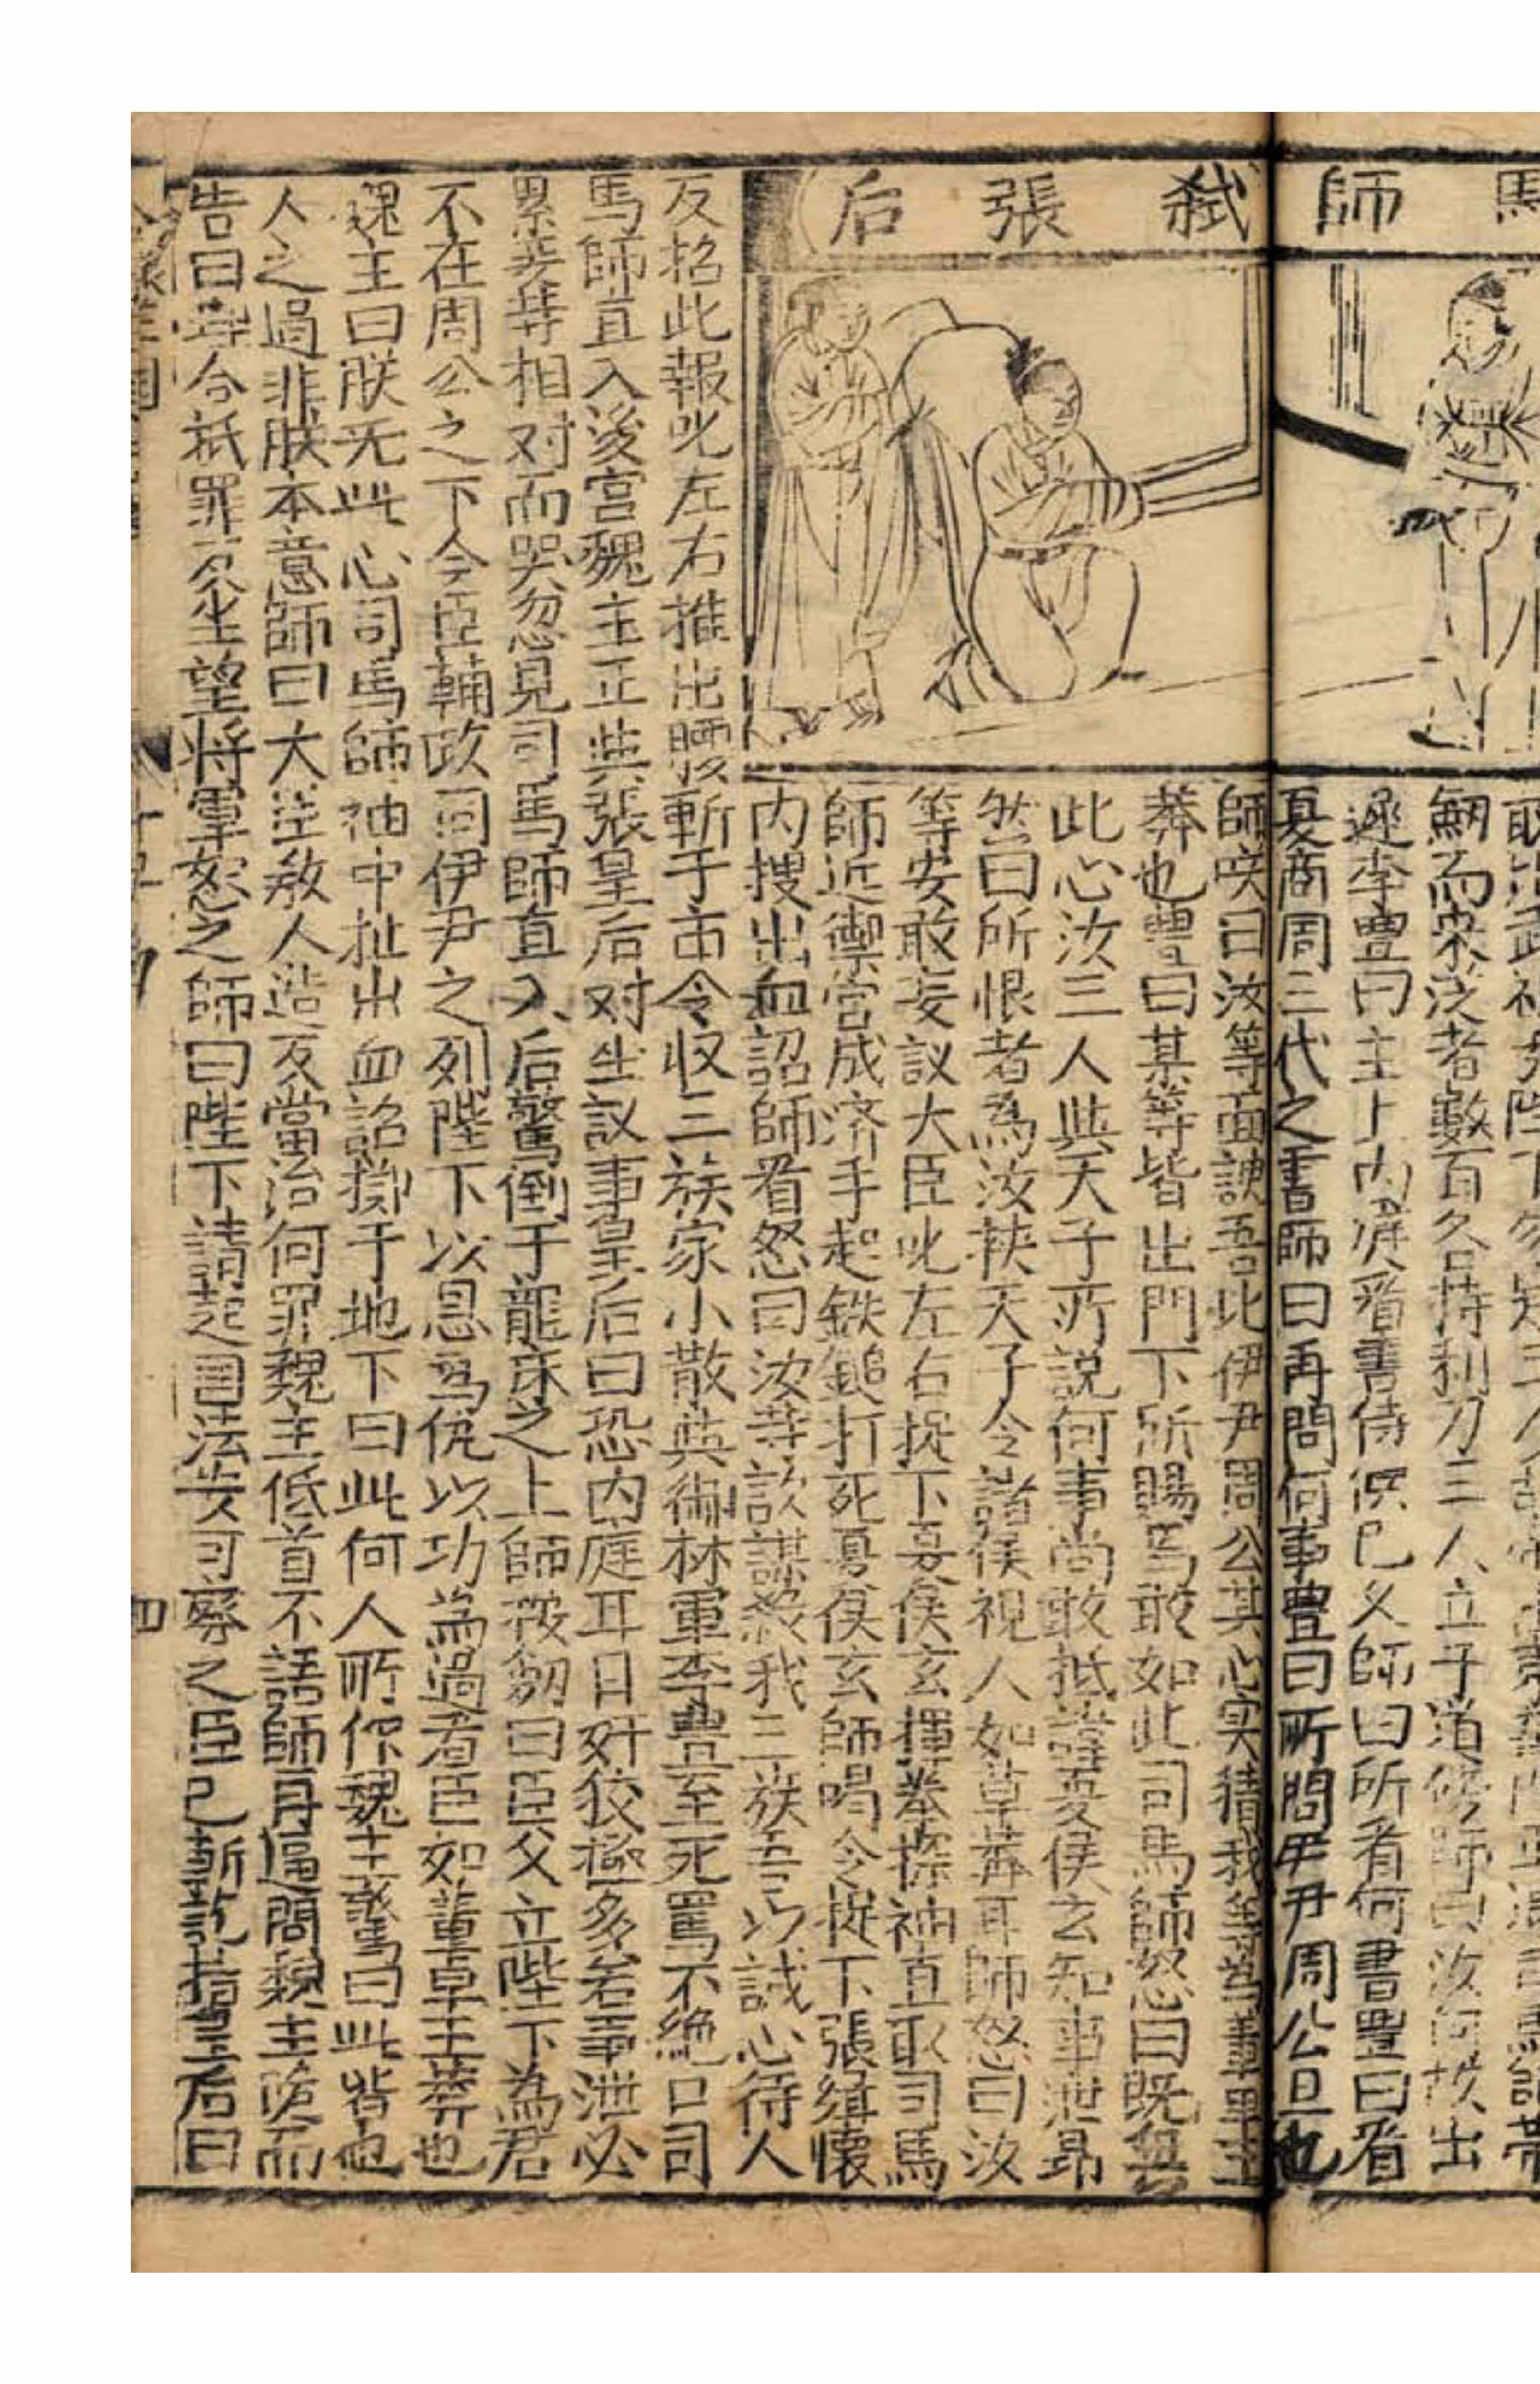 馬師弒張后
劒而來從者數百各持利刀三人立于道傍師曰汝何故出
遲李豐曰主上內庭看書侍俱已久師曰所看何書豐曰看
夏商周三代之書師曰再問何事豐曰所問伊尹周公旦也
師咲曰汝等面諛吾比伊尹周公其心实猜我等為董卓王
莽也豊曰某等皆出門下所賜焉敢如此司馬師怒曰既無
此心汝三人與天子所説何事尚敢抵諱夏侯玄知事泄昻
然曰所恨者為汝挾天子令諸侯視人如草莽耳師怒曰汝
等安敢妄議大臣叱左右捉下夏侯玄揮拳捺袖直取司馬
師近禦官成济手起鉄鎚打死夏侯玄師喝令捉下張緝懷
内搜出血詔師看怒曰汝等欲謀殺我三族吾以誠心待人
反招此報叱左右推出腰斬于市令収三族家小散與御林軍李豊至死罵不絶口司
馬師直入後宫魏主正與張皇后对坐议事皇后曰恐内庭耳目奸狡極多若事泄必
累妾等相对而哭忽見司馬師直入后驚倒于龍床之上師按劒曰臣父立陛下為君
不在周公之下今臣輔政同伊尹之列陛下以恩為仇以功為過看臣如董卓王莽也
魏主曰朕无此心司馬師袖中扯出血詔擲于地下曰此何人所作魏主驚曰此皆他
人之過非朕本意師曰大臣教人造反當治何罪魏主低首不語師再逼問魏主跪而
告曰與合衹罪反坐望將軍恕之師曰陛下請起国法安可廢之臣已斬訖指皇后曰